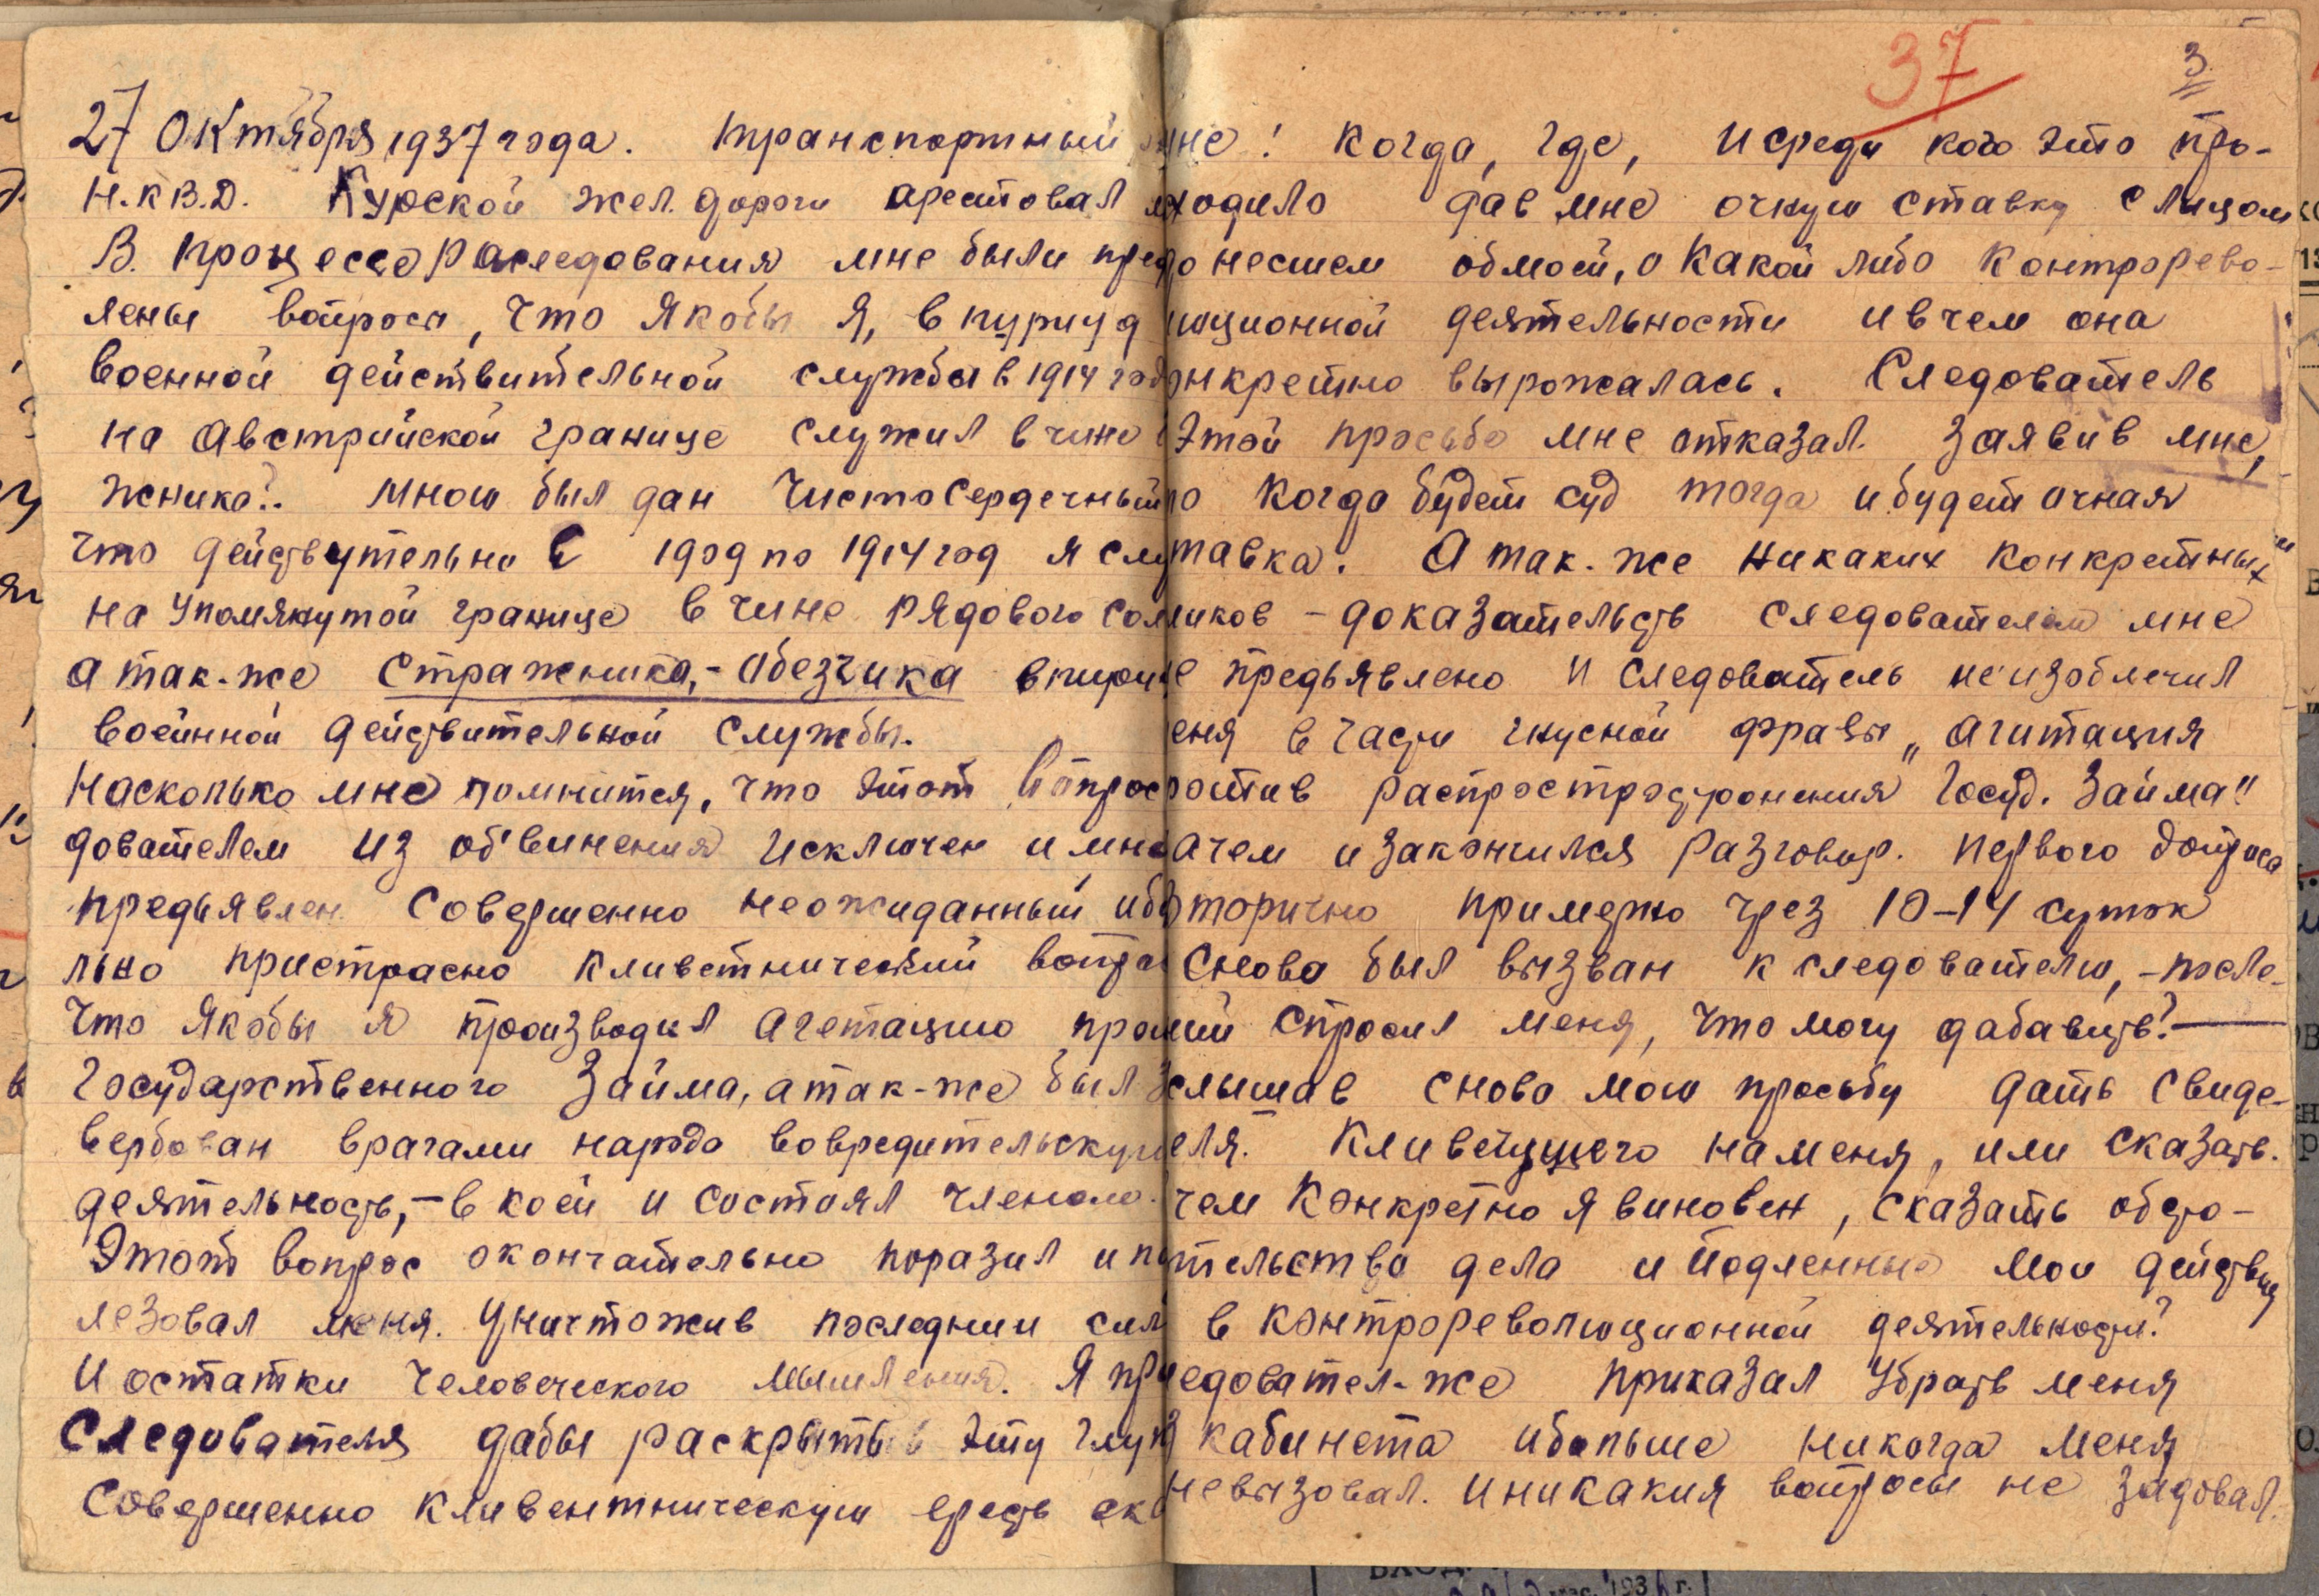 27 Октября 1937 года. транспортный
Н.К.В.Д. Курской жел. дороги арестовал
В. процессе раследования мне были пред
лены вопросы, что якобы я, в пуриуд
военной действительной службы в 1914 год
на Австрийской границе служил в чине
жника?.. мною был дан чистосердечный
что действутельно с 19 год по 1914 год я слу
на упомянутой границе в чине рядового сол
а так-же стражника,- обезчика в пири
военной действительной службы.
Насколько мне помнится, что этот вопрос
дователем из об'винения исключен и мне
предьявлен совершенно неожиданный и бу
льно пристрасно кливетнический вопро
что якобы я производил агетацию про
Государственного Займа, а так-же был з
вербован врагами народа во вредительскую
деятельность,- в коей и состоял членом.
Этот вопрос окончательно поразил и п
лезовал меня. Уничтожив последнии сил
и остатки человеческого мышления. Я пр
следователя дабы раскрыть эту глуп
совершенно кливентническую ересь ска
37
3
мне! Когда, где, и среди кого это про-
ходило дав мне очную ставку с лицом
донесшем обмоей, о какой либо контрорево-
юционной деятельности и в чем она
онкретно вырожалась. Следователь
Этой просьбе мне отказал. заявив мне,
о когда будет суд тогда и будет очная
тавка. А так-же никаких конкретных
иков - доказательств следователем мне
е предьявлено и следователь не изоблечил
еня в части гнусной фразы „Агитация
ротив распрострэстронения Госуд. Займа"
ачем и закончился разговор. первого допроса
торично примерно чрез 10-14 суток
снова был вызван к следователю, -после-
ий спросил меня, что могу дабавить?—
слышав снова мою просьбу дать свиде-
еля. Кливетущего на меня, или сказать.
чем конкретно я виновен, сказать обсто-
тельства дела и подленные мои действия
в контрореволюционной деятельности?
едовател-же приказал убрать меня
з кабинета и больше никогда меня
невызовал. и никакия вопросы не задовал.